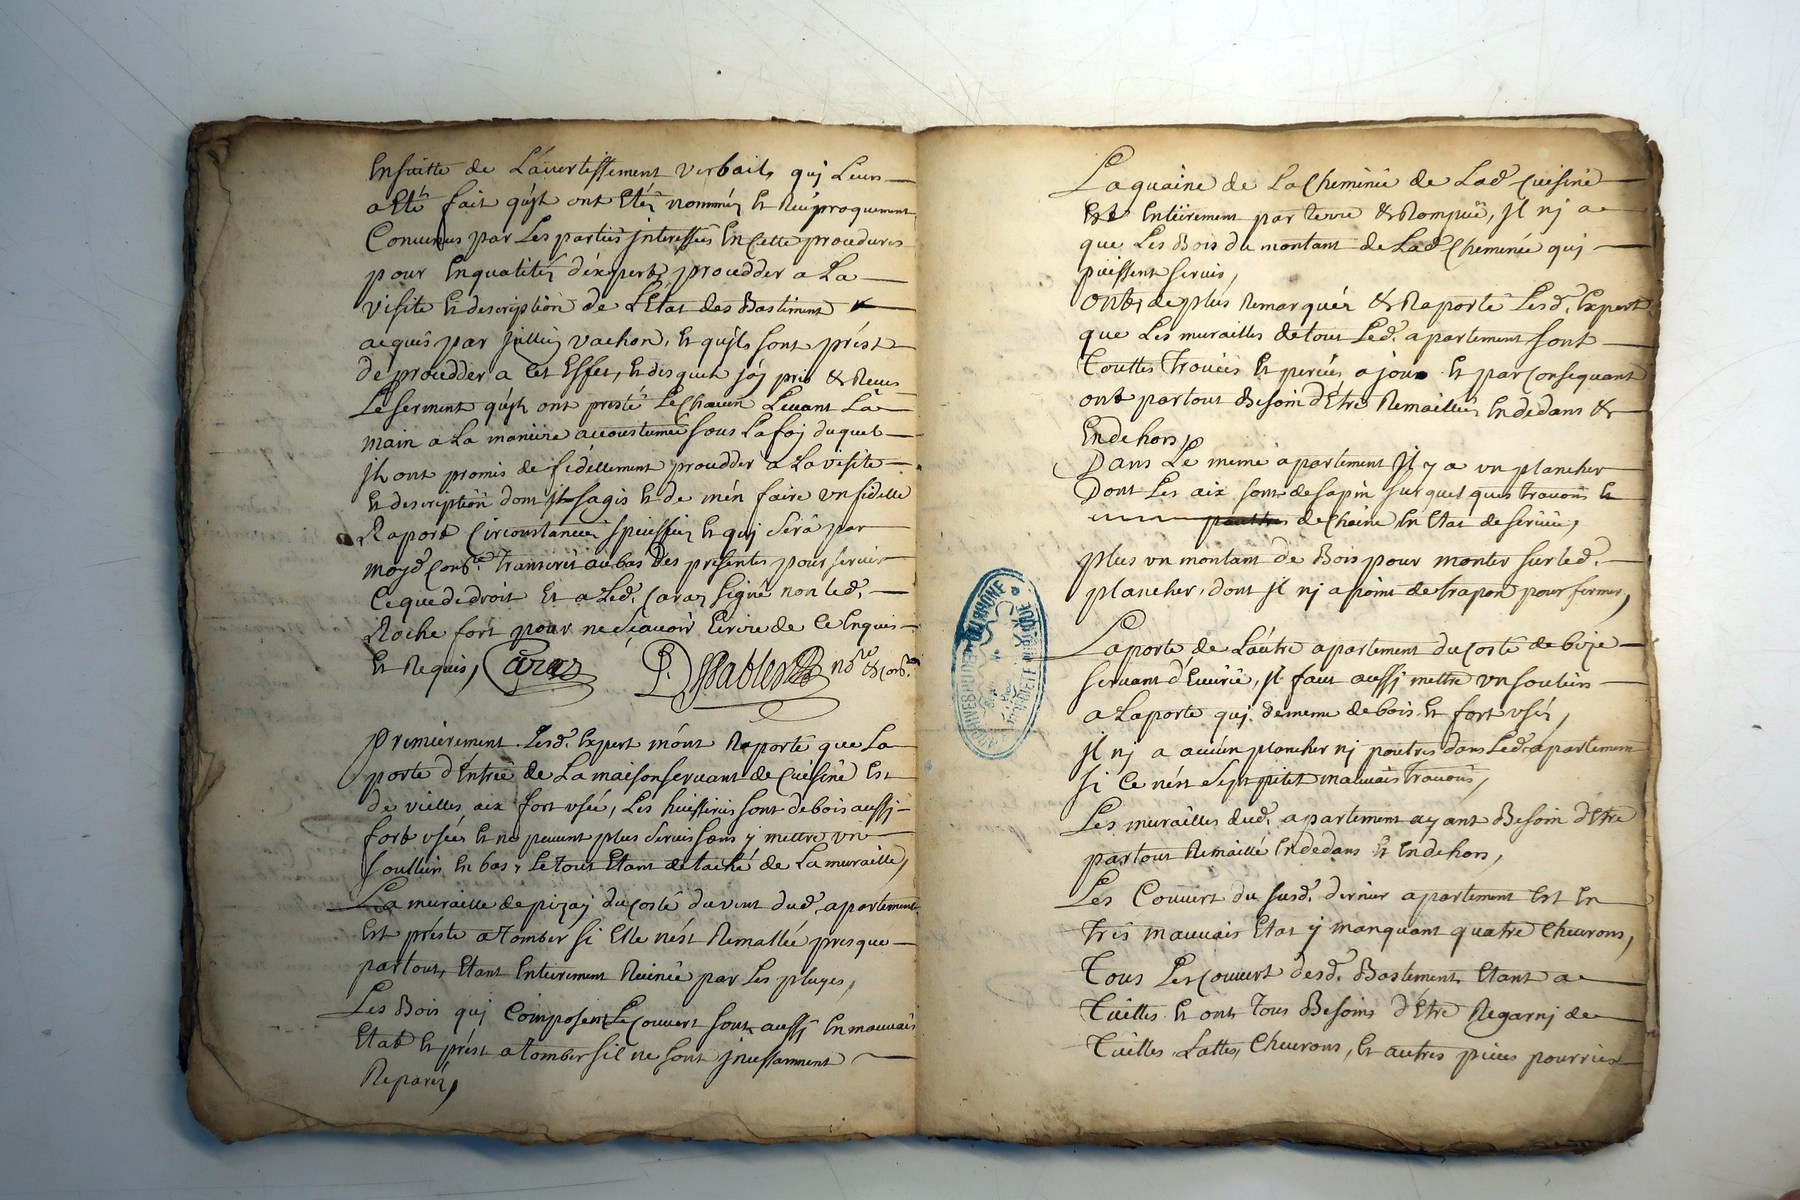 Ensuitte de L'avertissement verbails quj Leurs
a Eté fait qu'jls ont Etéz nomméz Et Reciproquement
Convenus par Les parties jnteressées En Cette procedures
pour Enqualitéz d'expert, procedder a La
visite Et description de L'Etat des Bastiment
acquis par jullien vachon, Et qu'jls sont prést
de procedder a Cet Effet, Et desquels j'aj pris & Reçus
Le serment qu'jls ont presté Le Chacun Levant La
main a La maniere accoustumée sous La foj duquel
jls ont promis de fidellement procedder a La visite
Et description dont jl sagis Et de m'én faire vn fidelle
Raport Circonstanciéz speciffiéz Et quj Serâ par
moyd. Comre. transcrit au bas Des presentes pour servir
Ceque de droit Et a Led. Caraz signé non led.
Rochefort pour ne sçauoir Ecrire de Ce Enquis
Et Requis, Caraz P. Desablers nore. & Comre.
Premierement Lesd. Expert m'ont Raporté que La
porte d'Entrée de La maison servant de Cuisine Est
de vielles aix fort vsée, Les huisseries sont de bois aussj
fort vsées Et ne peuvent plus servir sans y mettre vn
soutlien En bas, Le tout Etant detaché de La muraille,
La muraille de pizaj du costé du vent dud. apartement
Est préste a tomber si Elle n'ést Remaillée presque
partout, Etant Entierement Ruinée par Les pluyes,
Les Bois quj Composent Le Couvert sont aussj En mauvais
Etat Et prést a tomber sil ne sont jncessamment
Reparéz,
La quaine de La Cheminée de Lad. Cuisine
Est Entierement par terre & Rompuë, jl nj a
que Les Bois du montant de Lad. Cheminée quj
puissent servir,
Ont, de plus Remarquér & Raporté Lesd. Expert
que Les murailles de tout Led. apartement sont
Touttes Trouées Et percées a jour Et par Consequant
ont partout Besoin d'Etre Remailliés En dedans &
En dehors,
Dans Le meme apartement jl y a vn plancher
Dont Les aix sont de sapin sur quelques travons Et
pouttres de Chaine En Etat de service,
plus vn montant de Bois pour monter sur led.
plancher, dont jl nj a point de trapon pour fermer,
La porte de L'autre apartement du costé de bize
servant d'Ecurie, jl faut aussj mettre vn soutien
a La porte quj. dememe de bois Et fort vséz,
jl nj a aucun plancher nj poutres dans Led. apartement
si Ce n'ést sept petit mauvais travons,
Les murailles dud. apartement ayant Besoin d'Etre
partout Remaillé En dedans Et En dehors,
Les Couvert du susd. dernier apartement Est En
tres mauvais Etat y manquant quatre Chevrons,
Tous Les Couvert desd. Bastement Etant a
Tuilles Et ont Tous Besoins d'Etre Regarnj de
Tuilles, Lattes, Chevrons, Et autres pieces pourries